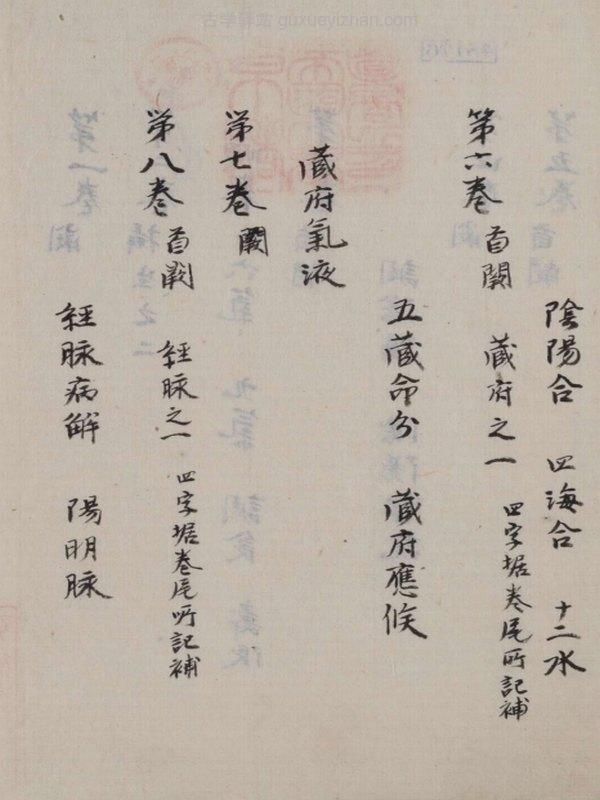 古学驿站 guxueyizhan.com
陰陽合 四海合 十二水
第六巻 首闕 藏府之一 四字据卷尾所記補
五藏命分 藏府應候
藏府氣液
第七巻 闕
第八巻 首闕 経脉之一 四字据巻尾所記補
経脉病解 陽明脉